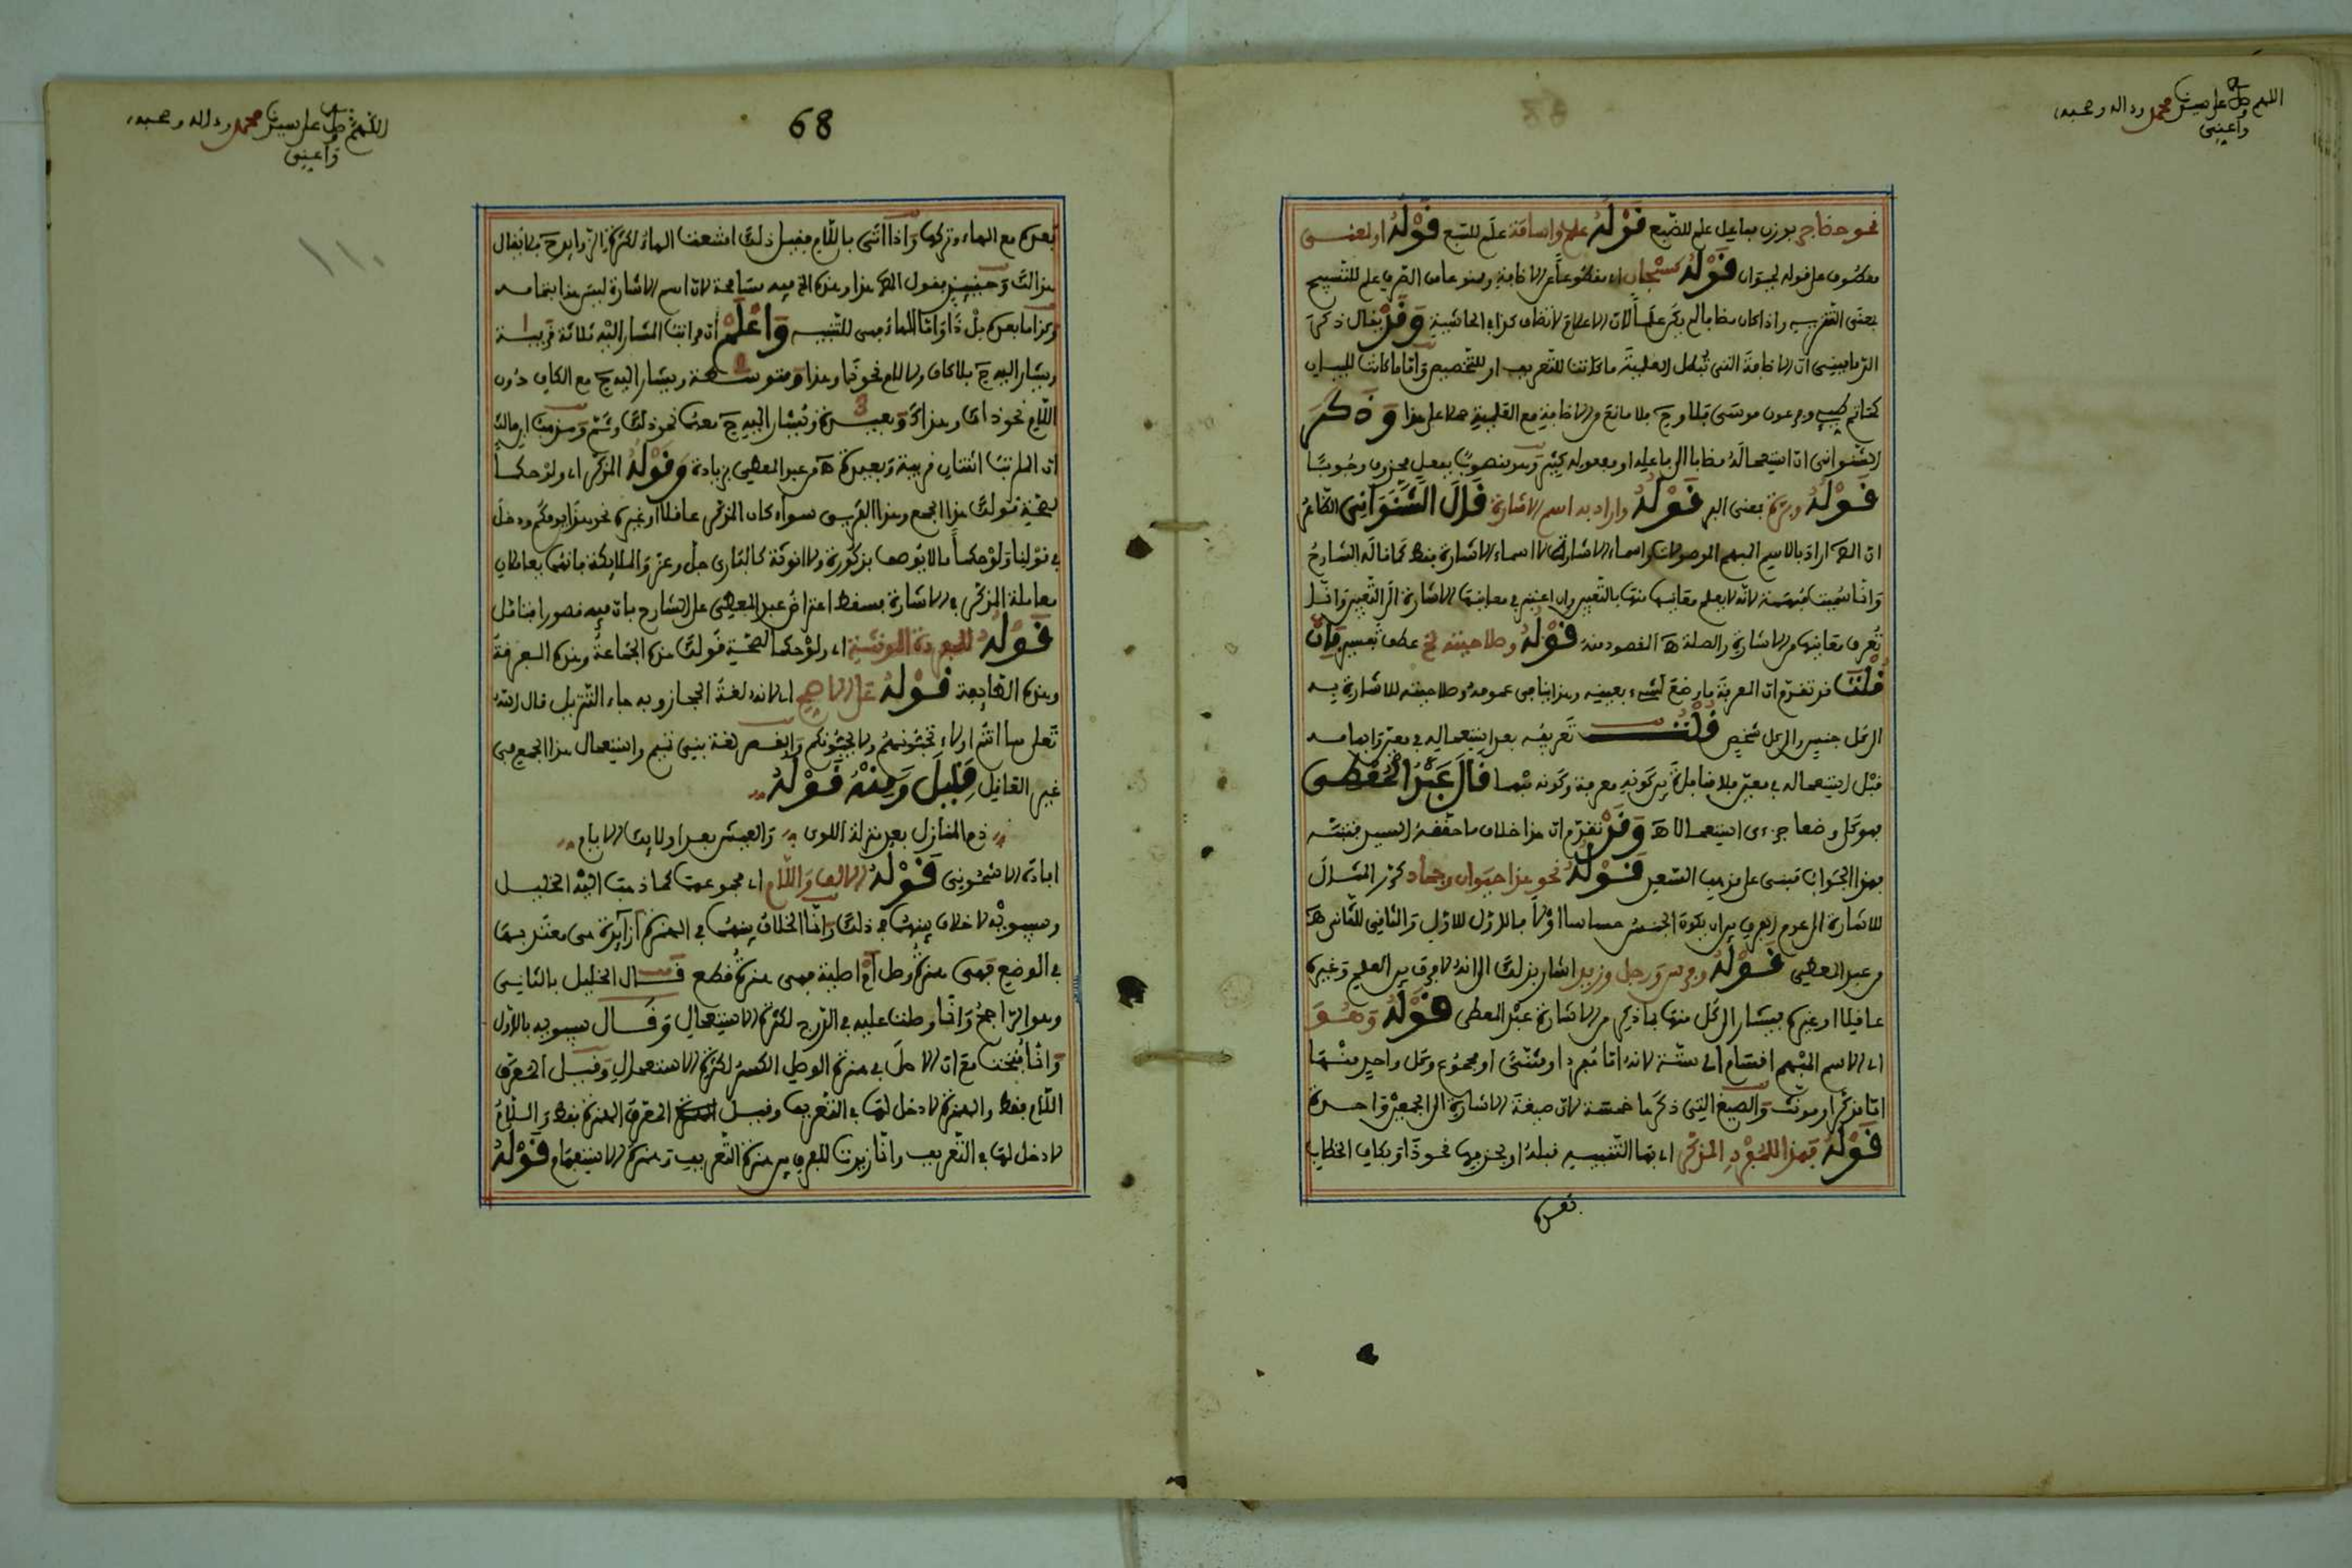 اللهم صل على سيدنا محمد وءاله وصحبه
واعني
نحو حضاجر بوزن مفاعيل علم للضبع قوله علم واسامة علم للسبع قوله او لمعنى
معطوف على قوله لحيوان قوله كسبحان اي مقطوعا عن الاضافة وهو علم للتسبيح
بمعنى التنزيه واذا كان مضافا لم يكن علما لان الاعلام لا تضاف كذا في الحاشية وقد يقال ذكر
الدماميني ان الاضافة التي تبطل العلمية ما كانت للتعريف او للتخصيص واما ما كانت للبيان
كحاتم طيء وفرعون موسى فلا وح فلا مانع من الاضافة مع العلمية على هذا وذكر
الشنواني ان استعماله مضافا الى فاعله او مفعوله كثير وهو منصوب بفعل محذوف وجوبا
قوله وبرة بمعنى البر قوله واراد به اسم الاشارة قال الشنواني الظاهر
ان المص اراد بالاسم المبهم الموصولات واسماء الاشارة لا اسماء الاشارة فقط كما قاله الشارح
وانما سميت مبهمة لانه لا يعلم معانيها منها بالتعيين وان اعتبر في معانيها الاشارة الى التعيين وانما
تعرف معانيها من الاشارة والصلة اه المقصود منه قوله وصلاحيته الخ عطف تفسير فان
قلت قد تقدم ان المعرفة ما وضع لشيء بعينه وهذا ينافي عمومه وصلاحيته للاشارة به
الى كل جنس والى كل شخص قلت تعريفه بعد استعماله في معين وابهامه
قبل استعماله في معين فلا منافاة بين كونه معرفة وكونه مبهما قال عبد المعطي
فهو كلي وضعا جزءي استعمالا اه وقد تقدم ان هذا خلاف ما حققه السيد فتنبه
فهذا الجواب مبني على مذهب السعد قوله نحو هذا حيوان وجماد كرر المثال
للاشارة الى عدم الفرق بين ان يكون الجنس حساسا او لا فالاول للاول والثاني للثاني اه
من عبد المعطي قوله وفرس ورجل وزيد اشار بذلك الى انه لا فرق بين العلم وغيره
عاقلا او غيره فيشار الى كل منها بما ذكر من الاشارة عبد المعطي قوله وهو
اي الاسم المبهم اقسام اي ستة لانه اما مفرد او مثنى او مجموع وكل واحد منها
اما مذكر او مونث والصيغ التي ذكرها خمسة لان صيغة الاشارة الى الجمعين واحدة
قوله فهذا للمفرد المذكر اي بها التنبيه قبله او بحذفها نحو ذا وبكاف الخطاب
بعده
اللهم صل على سيدنا محمد وءاله وصحبه
واعني
68
١١٠
بعده مع الهاء وتركها واذا اتى باللام قبل ذلك امتنعت الهاء لكثرة الزوايد ح فلا يقال
هذالك وحينئذ فقول المص هذا وهذه الخ فيه مسامحة لان اسم الاشارة ليس هذا بتمامه
وكذا ما بعده بل ذا واما الهاء فهي للتنبيه واعلم ان مراتب المشار اليه ثلاثة قريبة 1
ويشار اليه ح بلا كاف ولا لام نحو ذا وهذا ومتوسطة 2 ويشار اليه ح مع الكاف دون
اللام نحو ذاك وهذاك وبعيدة 3 ويشار اليه ح بهما نحو ذلك وثم ومذهب ابن مالك
ان المراتب اثنتان قريبة وبعيدة اه من عبد المعطي بزيادة وقوله المذكر اي ولو حكما
لصحة قولك هذا الجمع وهذا الفريق سواء كان المذكر عاقلا او غيره نحو هذا يومكم ودخل
في قولنا ولو حكما ما لا يوصف بذكورة ولا انوثة كالباري جل وعز والملايكة فانهما يعاملان
معاملة المذكر في الاشارة فسقط اعتراض عبد المعطي على الشارح بان فيه قصورا فتامل
قوله للمفردة المونثة اي ولو حكما لصحة قولك هذه الجماعة وهذه الفرقة
وهذه الطايفة قوله على الاصح اي لانه لغة الحجاز وبه جاء التنزيل قال الله
تعلى ها انتم اولاء تحبونهم ولا يحبونكم والقصر لغة بني تميم واستعمال هذا الجمع في
غير العاقل قليل ومنه قوله
ذم المنازل بعد منزلة اللوى والعيش بعد اولائك الايام
افاده الاشموني قوله الالف واللام اي مجموعهما كما ذهب اليه الخليل
وسيبويه لا خلاف بينهما في ذلك وانما الخلاف بينهما في الهمزة أزايدة هي معتد بها
في الوضع فهي همزة وصل ام اصلية فهي همزة قطع قال الخليل بالثاني
وهو الراجح وانما وصلت عليه في الدرج لكثرة الاستعمال وقال سيبويه بالاول
وانما فتحت مع ان الاصل في همزة الوصل الكسر لكثرة الاستعمال وقيل المعرف
اللام فقط والهمزة لا دخل لها في التعريف وقيل المعرف الهمزة فقط واللام
لا دخل لها في التعريف وانما زيدت للفرق بين همزة التعريف وهمزة الاستفهام قوله